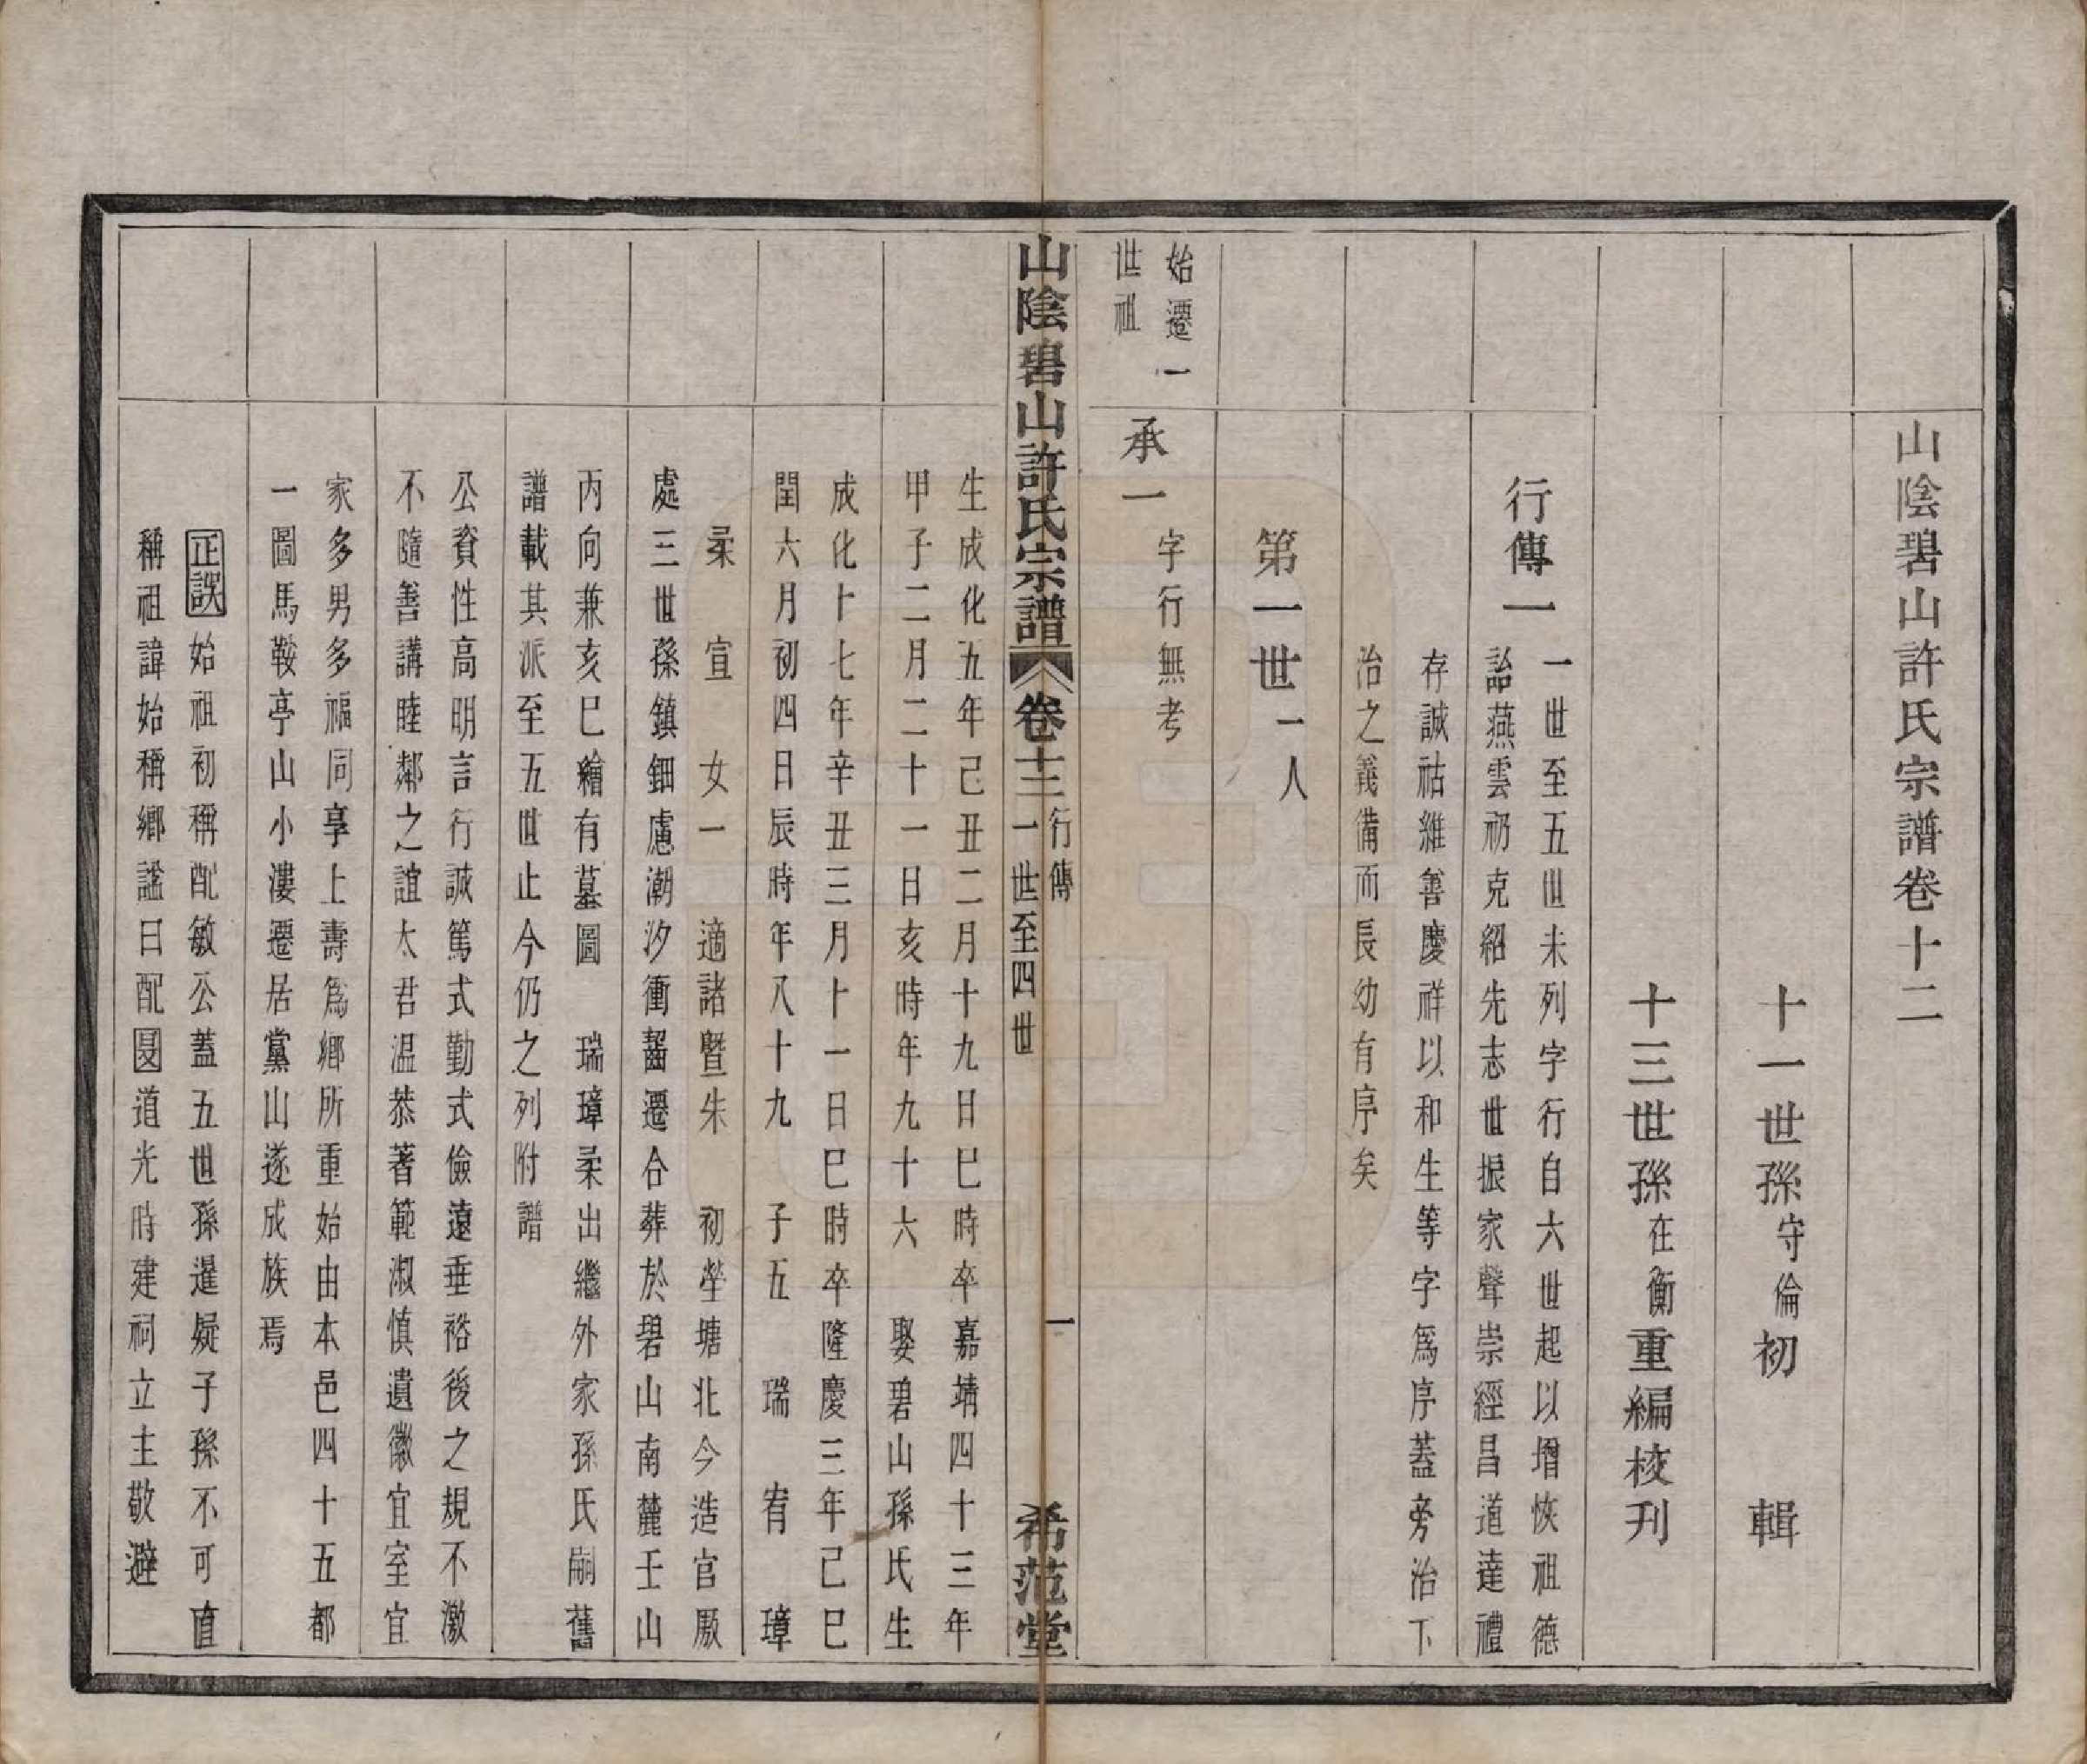 山陰碧山許氏宗譜卷十二
十一世孫守倫初　輯
十三世孫在衡重編校刊
行傳一
一世至五世未列字行自六世起以增恢祖德
詒燕雲礽克紹先志世振家聲崇經昌道達禮
存誠祜維善慶祥以和生等字爲序蓋旁治下
治之義備而長幼有序矣
第一世一人
始遷一
世祖
承一
字行無考
山陰碧山許氏宗譜
卷十二
行傳
一世至四世
一
希范堂
生成化五年己丑二月十九日巳時卒嘉靖四十三年
甲子二月二十一日亥時年九十六　娶碧山孫氏生
成化十七年辛丑三月十一日巳時卒隆慶三年己巳
閏六月初四日辰時年八十九　子五　瑞　宥　璋
柔　宣　女一　適諸暨朱　初塋塘北今造官廠
處三世孫鎮鈿慮潮汐衝齧遷合葬於碧山南麓壬山
丙向兼亥巳繪有墓圖　瑞璋柔出繼外家孫氏嗣舊
譜載其派至五世止今仍之列附譜
公資性高明言行誠篤式勤式儉遠垂裕後之規不激
不隨善講睦鄰之誼太君温恭著範淑慎遺徽宜室宜
家多男多福同享上壽爲鄉所重始由本邑四十五都
一圖馬鞍亭山小漊遷居黨山遂成族焉
正誤
始祖初稱配敏公蓋五世孫暹疑子孫不可直
稱祖諱始稱鄉謚曰配圂道光時建祠立主敬避